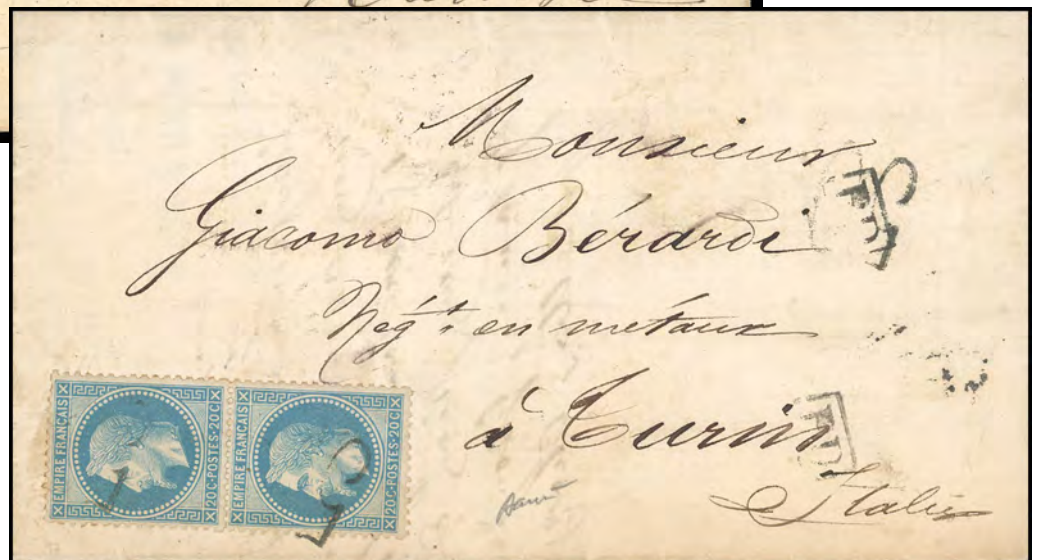 Monsieur
Giacomo Bérardi
Négt. en métaux
à Turin
Italie
EMPIRE FRANÇAIS
20C·POSTES·20C
EMPIRE FRANÇAIS
20C·POSTES·20C